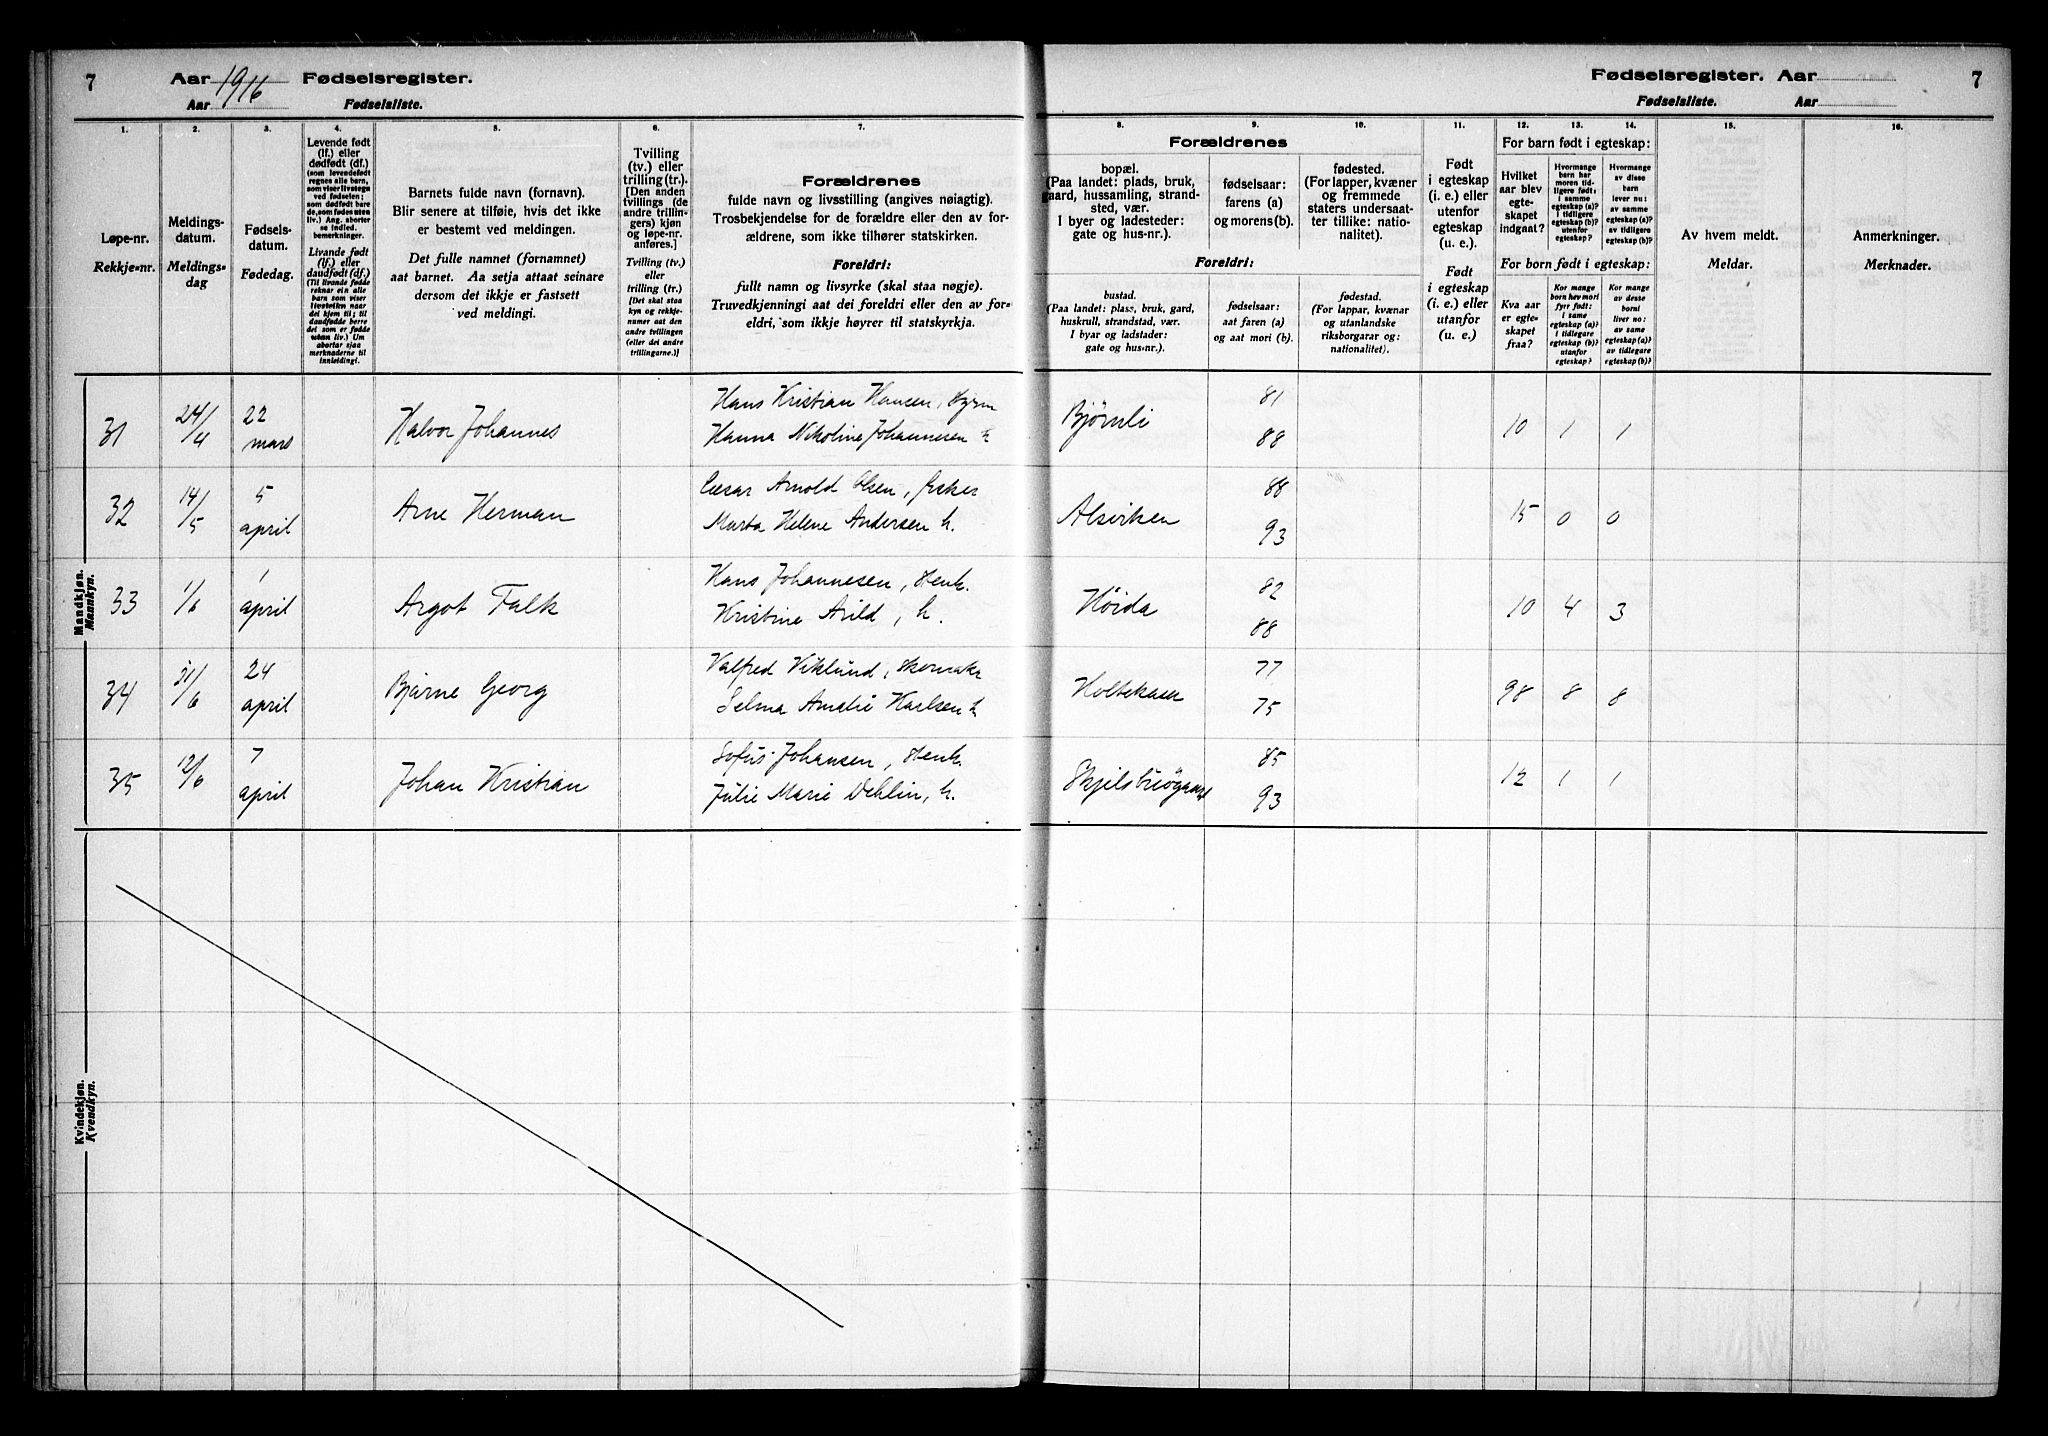 7
Aar 1916 Fødselsregister.
Aar Fødselsliste.
Fødselsregister. Aar
7
Fødselsliste. Aar
1. 2. 3. 4. 5. 6. 7.
Løpe-nr.
Rekkje-nr.
Meldings-
datum.
Meldings-
dag
Fødsels-
datum.
Fødedag.
Levende født
(lf.) eller
dødfødt (df.)
(som levendefødt
regnes alle barn,
som viser livstegn
ved fødselen;
som dødfødt bare
de, som fødes uten
liv.) Ang. aborter
se indled.
bemerkninger.
Livande født
(lf.) eller
daudfødt (df.)
(Til livande fødde
reknar ein alle
born som viser
livsteikn naar
dei kjem til; til
daudfødde berre
dei som er fødde
utan liv.) Um
abortar sjaa
merknaderne til
innleidingi.
Barnets fulde navn (fornavn).
Blir senere at tilføie, hvis det ikke
er bestemt ved meldingen.
Det fulle namnet (fornamnet)
aat barnet. Aa setja attaat seinare
dersom det ikkje er fastsett
ved meldingi.
Tvilling
(tv.) eller
trilling (tr.).
[Den anden
tvillings (de
andre trillin-
gers) kjøn
og løpe-nr.
anføres.]
Tvilling (tv.)
eller
trilling (tr.)
[Det skal staa
kyn og rekkje-
numer aat den
andre tvillingen
(eller dei andre
trillingarne.)]
Forældrenes
fulde navn og livsstilling (angives nøiagtig).
Trosbekjendelse for de forældre eller den av for-
ældrene, som ikke tilhører statskirken.
Foreldri:
fullt namn og livsyrke (skal staa nøgje).
Truvedkjenningi aat dei foreldri eller den av for-
eldri, som ikkje høyrer til statskyrkja.
8. 9. 10. 11. 12. 13. 14. 15. 16.
Forældrenes
bopæl.
(Paa landet: plads, bruk,
gaard, hussamling, strand-
sted, vær.
I byer og ladesteder:
gate og hus-nr.).
fødselsaar:
farens (a)
og morens (b).
fødested.
(For lapper, kvæner
og fremmede
staters undersaat-
ter tillike: natio-
nalitet).
Foreldri:
bustad.
(Paa landet: plass, bruk, gard,
huskrull, strandstad, vær.
I byar og ladstader:
gate og hus-nr.).
fødselsaar:
aat faren (a)
og aat mori (b).
fødestad.
(For lappar, kvænar
og utanlandske
riksborgarar og:
nationalitet).
Født
i egteskap
(i. e.) eller
utenfor
egteskap
(u. e.).
Født
i egteskap
(i. e.) eller
utanfor
(u. e.)
For barn født i egteskap:
Hvilket
aar blev
egte-
skapet
indgaat?
Hvormange
barn har
moren tid-
ligere født:
i samme
egteskap (a)?
i tidligere
egteskap (b)?
utenfor
egteskap?
Hvormange
av disse
barn
lever nu:
av samme
egteskap (a)?
av tidligere
egteskap (b)?
For born født i egteskap:
Kva aar
er egte-
skapet
fraa?
Kor mange
born hev mori
fyrr født:
i same
egteskap (a)?
i tidlegare
egteskap (b)?
utanfor
egteskap?
Kor mange
av desse
borni
liver no:
av same
egteskap (a)?
av tidlegare
egteskap (b)?
Av hvem meldt.
Meldar.
Anmerkninger.
Merknader.
Mandkjøn.
Mannkyn.
31 24/4 22 mars Halvor Johannes Hans Kristian Hansen,
Hanna Nikoline Johannesen h Bjørnli 81 88 10 1 1
32 14/5 5 april Arne Herman Cæsar Arnold Olsen, fisker
Marta Helene Andersen h. Alsviken 88 93 15 0 0
33 1/6 1 april Argot Falk Hans Johannesen, stenh.
Kristine Arild, h. Høida 82 88 10 4 3
34 /6 24 april Bjarne Georg Valfred Viklund, skomaker
Selma Amalie Karlsen h Holtekasa 77 75 98 8 8
35 12/6 7 april Johan Kristian Sofus Johansen, stenh.
Julie Marie Dehlin, h. 85 93 12 1 1
Kvindekjøn.
Kvendkyn.